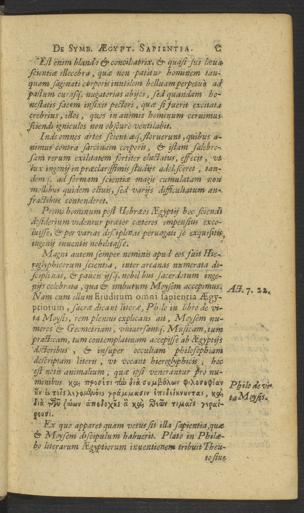 DE SYMB. ÆGYPT. SAPIENTIA. C
Est enim blanda & conciliatrix, & quasi sui lenis
scientiæ illecebra, quæ non patitur hominem tan-
quam saginati corporis inutilem belluam perpetuò ad
pastum cursusq. nugatorias abijci, sed quandam ho-
nestatis facem insixit pectori, quæ si fuerit excitata
crebrius, illos, quos in animis hominum cernimus
sciendi igniculos non obscurè ventilabit.
Inde omnes artes scientiæq. floruerunt, quibus a-
nimus contra sarcinam corporis, & istam salebro-
sam rerum exilitatem fortiter eluctatus, effecit, vt
sua ingenij in præclarissimis studijs adolesceret, tan-
dem q. ad
mollibus quidem clivis, sed varijs difficultatum an-
fractibus contenderet.
Primi hominum post Hebræos Ægyptij hoc sciendi
desiderium videntur præter cæteros impensius exco-
luisse, & per varias disciplinas pervagati se exquisitis
ingenij inventis nobilitasse.
Magni autem semper nominis apud eos fuit Hie-
roglyphicorum scientia, inter arcanas numerata di-
sciplinas, & paucis ijsq. nobilibus sacerdotum inge-
nijs celebrata, qua & imbutum Moysem accepimus.
Nam cum illum Eruditum omni sapientia Ægy-
ptiorum, sacræ dicant literæ, Philo in libro de vi-
ta Moysis, rem plenius explicans ait, Moysem nu-
meros & Geometriam, universamq. Musicam, tum
practicam, tum contemplativam accepisse ab Ægyptijs
doctoribus, & insuper occultam philosophiam
descriptam literis, vt vocant hieroglyphicis, hoc
est notis animalium, quæ ipsi venerantur pro nu-
minibus καὶ προσέτι τὴν διὰ συμβόλων φιλοσοφίαν
ἣν ἐν τοῖς λεγομένοις ἱεροῖς γράμμασιν ἐπιδείκνυνται, καὶ
διὰ τῆς τῶν ζώων ἀποδοχῆς ἃ καὶ θεῶν τιμαῖς γεραί-
ρουσι.
Ex quo apparet quam vetus sit illa sapientia, quæ
& Moysem discipulum habuerit. Plato in Philæ-
bo literarum Ægyptiorum inventionem tribuit Theu-
to sive
Act. 7. 22.
Philo de vi-
ta Moysis.